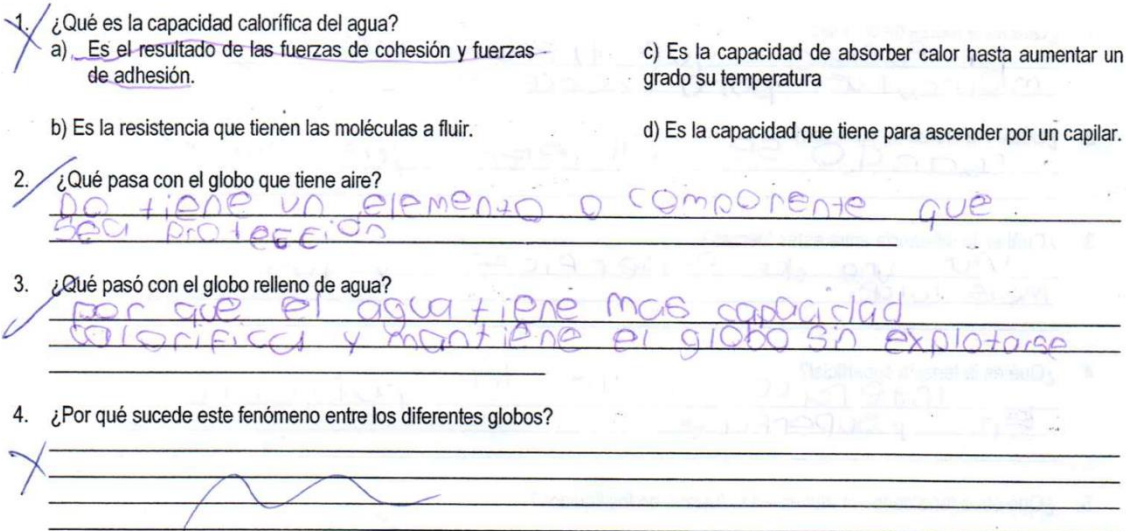 1. ¿Qué es la capacidad calorífica del agua?
a) Es el resultado de las fuerzas de cohesión y fuerzas de adhesión.
c) Es la capacidad de absorber calor hasta aumentar un grado su temperatura
b) Es la resistencia que tienen las moléculas a fluir.
d) Es la capacidad que tiene para ascender por un capilar.
2. ¿Qué pasa con el globo que tiene aire?
no tiene un elemento o componente que
sea protección
3. ¿Qué pasó con el globo relleno de agua?
por que el agua tiene mas capacidad
calorifica y mantiene el globo sin explotarse
4. ¿Por qué sucede este fenómeno entre los diferentes globos?